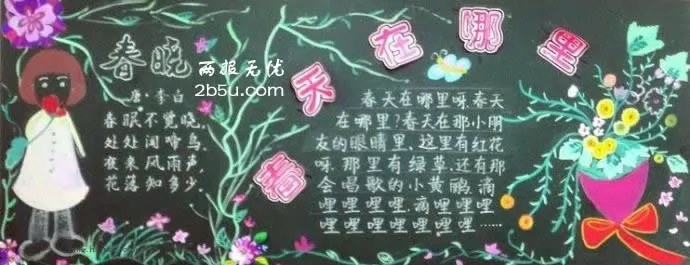 春晓
唐·李白
春眠不觉晓,
处处闻啼鸟.
夜来风雨声,
花落知多少.
两报无忧
2b5u.com
春天在哪里
春天在哪里呀,春天
在哪里?春天在那小朋
友的眼睛里、这里有红花
呀、那里有绿草、还有那
会唱歌的小黄鹂,滴
哩哩哩哩.滴哩哩哩
哩哩哩哩哩哩哩……